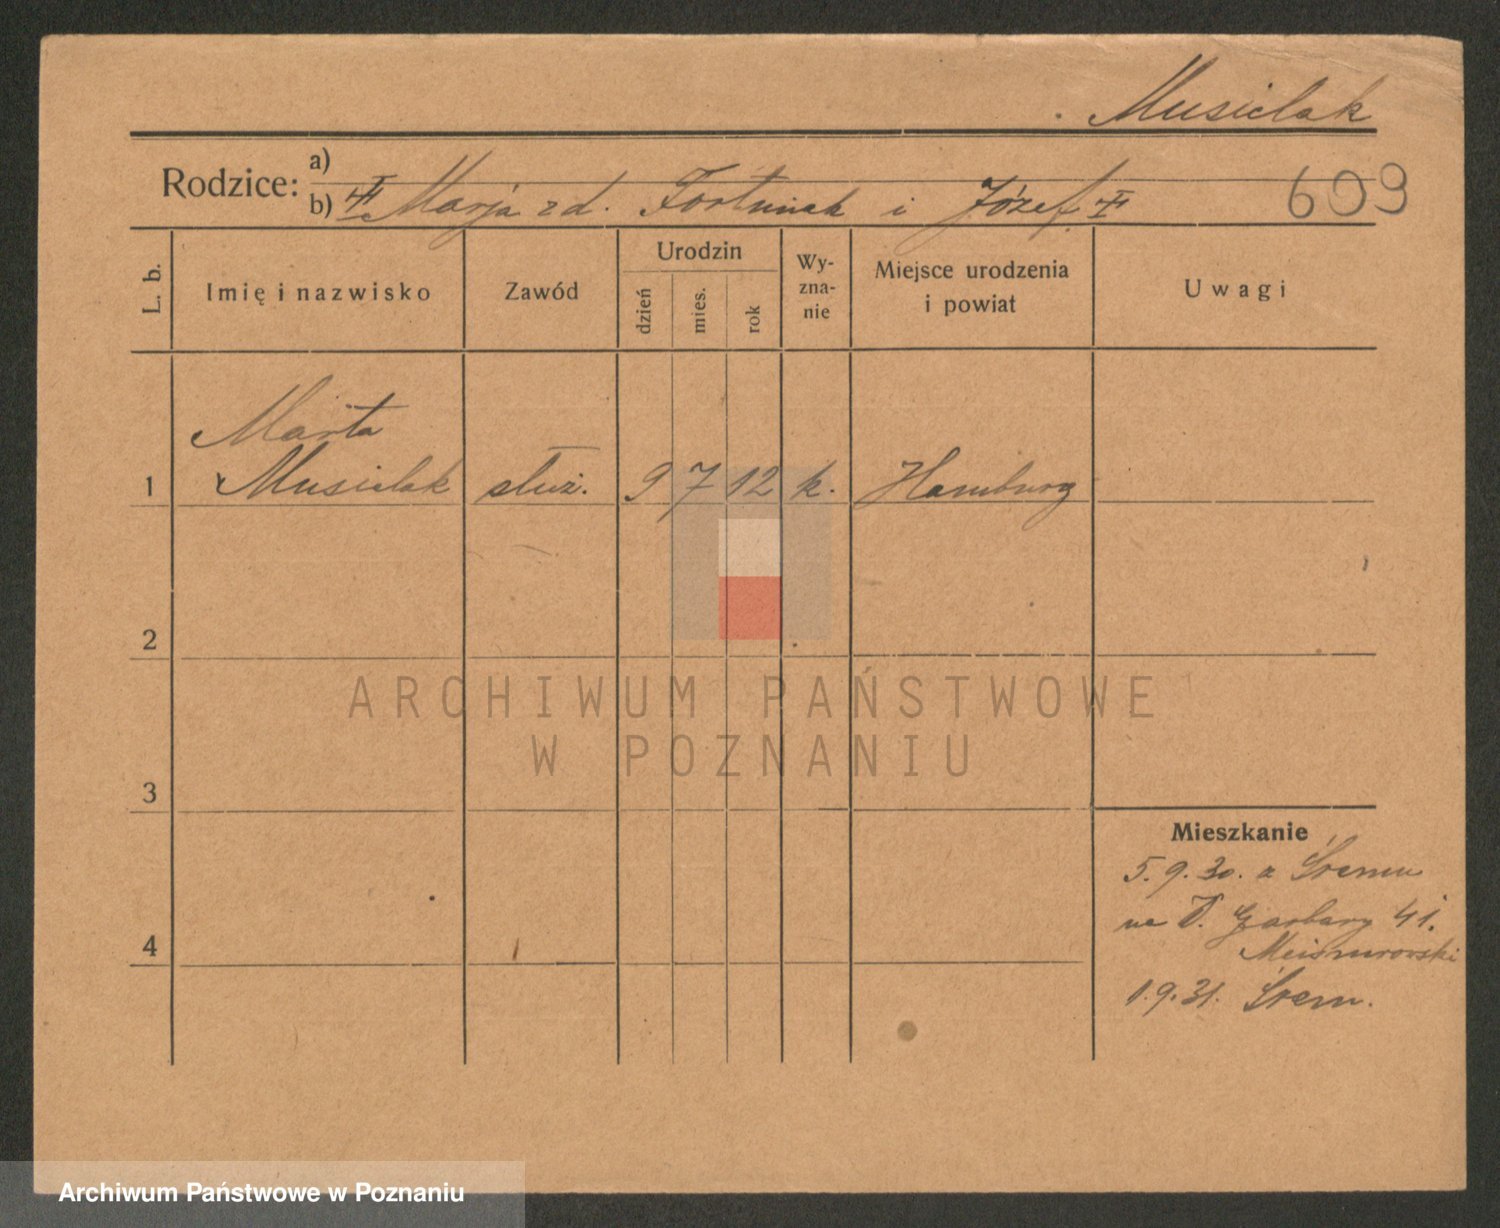 Musielak
Rodzice: a)
b) Marja zd. Fortuniak i Józef
609
L. b.
Imię i nazwisko
Zawód
Urodzin
dzień
mies.
rok
Wy-
zna-
nie
Miejsce urodzenia
i powiat
Uwagi
Marta
1 Musielak służ. 9 7 12 k. Hamburg
2
ARCHIWUM PAŃSTWOWE
W POZNANIU
3
4
Mieszkanie
5.9.30. z Śremu
na W. Garbary 41.
1.9.31. Śrem.
Archiwum Państwowe w Poznaniu